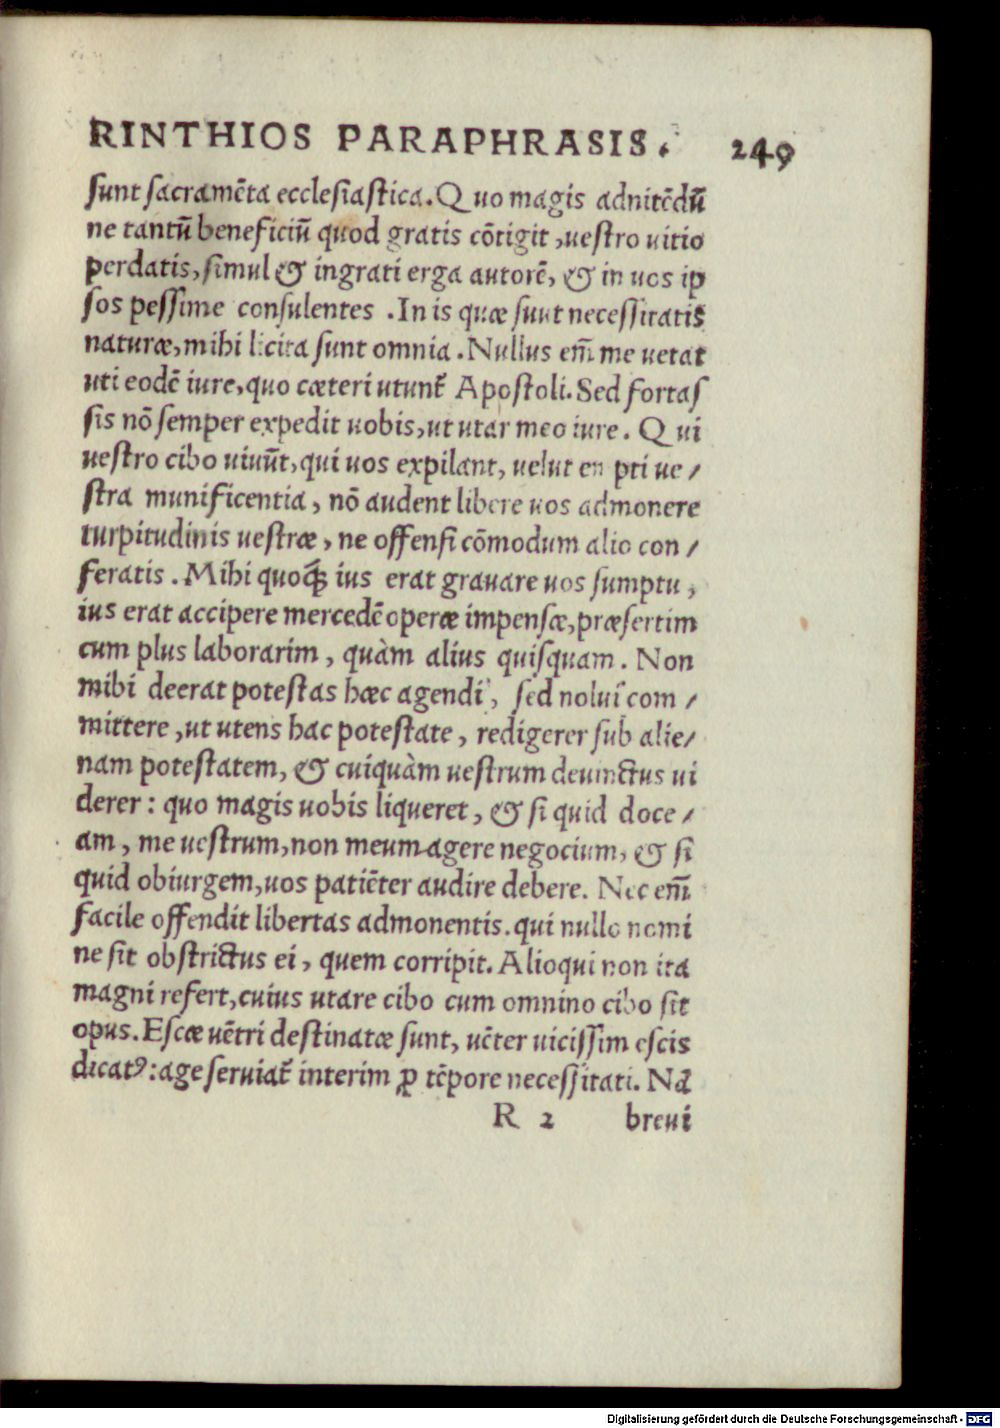 RINTHIOS PARAPHRASIS. 249
sunt sacramēta ecclesiastica. Quo magis adnitēdū
ne tantū beneficiū quod gratis cōtigit, uestro uitio
perdatis, simul & ingrati erga autorē, & in uos ip
sos pessime consulentes. In is quæ sunt necessitatis
naturæ, mihi licita sunt omnia. Nullus em̄ me uetat
uti eodē iure, quo cæteri utunt᷑ Apostoli. Sed fortas
sis nō semper expedit uobis, ut utar meo iure. Qui
uestro cibo uiuūt, qui uos expilant, uelut empti ue/
stra munificentia, nō audent libere uos admonere
turpitudinis uestræ, ne offensi cōmodum alio con/
feratis. Mihi quoq; ius erat grauare uos sumptu,
ius erat accipere mercedē operæ impensæ, præsertim
cum plus laborarim, quàm alius quisquam. Non
mihi deerat potestas hæc agendi, sed nolui com/
mittere, ut utens hac potestate, redigerer sub alie/
nam potestatem, & cuiquàm uestrum deuinctus ui
derer: quo magis uobis liqueret, & si quid doce/
am, me uestrum, non meum agere negocium, & si
quid obiurgem, uos patiēter audire debere. Nec em̄
facile offendit libertas admonentis. qui nullo nomi
ne sit obstrictus ei, quem corripit. Alioqui non ita
magni refert, cuius utare cibo cum omnino cibo sit
opus. Escæ uētri destinatæ sunt, uēter uicissim escis
dicatꝰ: age seruiat᷑ interim ꝓ tēpore necessitati. Nā
R 2 breui
Digitalisierung gefördert durch die Deutsche Forschungsgemeinschaft - DFG